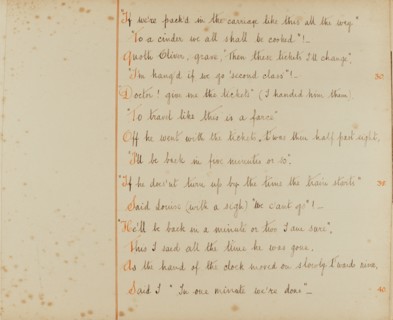 "If we're pack'd in the carriage like this all the way"
"To a cinder we all shall be cooked"!—
Quoth Oliver, grave, "Then these tickets I'll change",
"I'm hang'd if we go 'second class'"!— 30
Doctor! give me the tickets" (I handed him them).
"To travel like this is a farce"
Off he went with the tickets, 'twas then half past eight,
"I'll be back in five minutes or so".
"If he does'nt turn up by the time the train starts"
Said Louise (with a sigh) "we can't go"!—
"He'll be back in a minute or two I am sure",
This I said all the time he was gone,
As the hand of the clock moved on slowly t'wards nine,
Said I "In one minute we're done"— 40